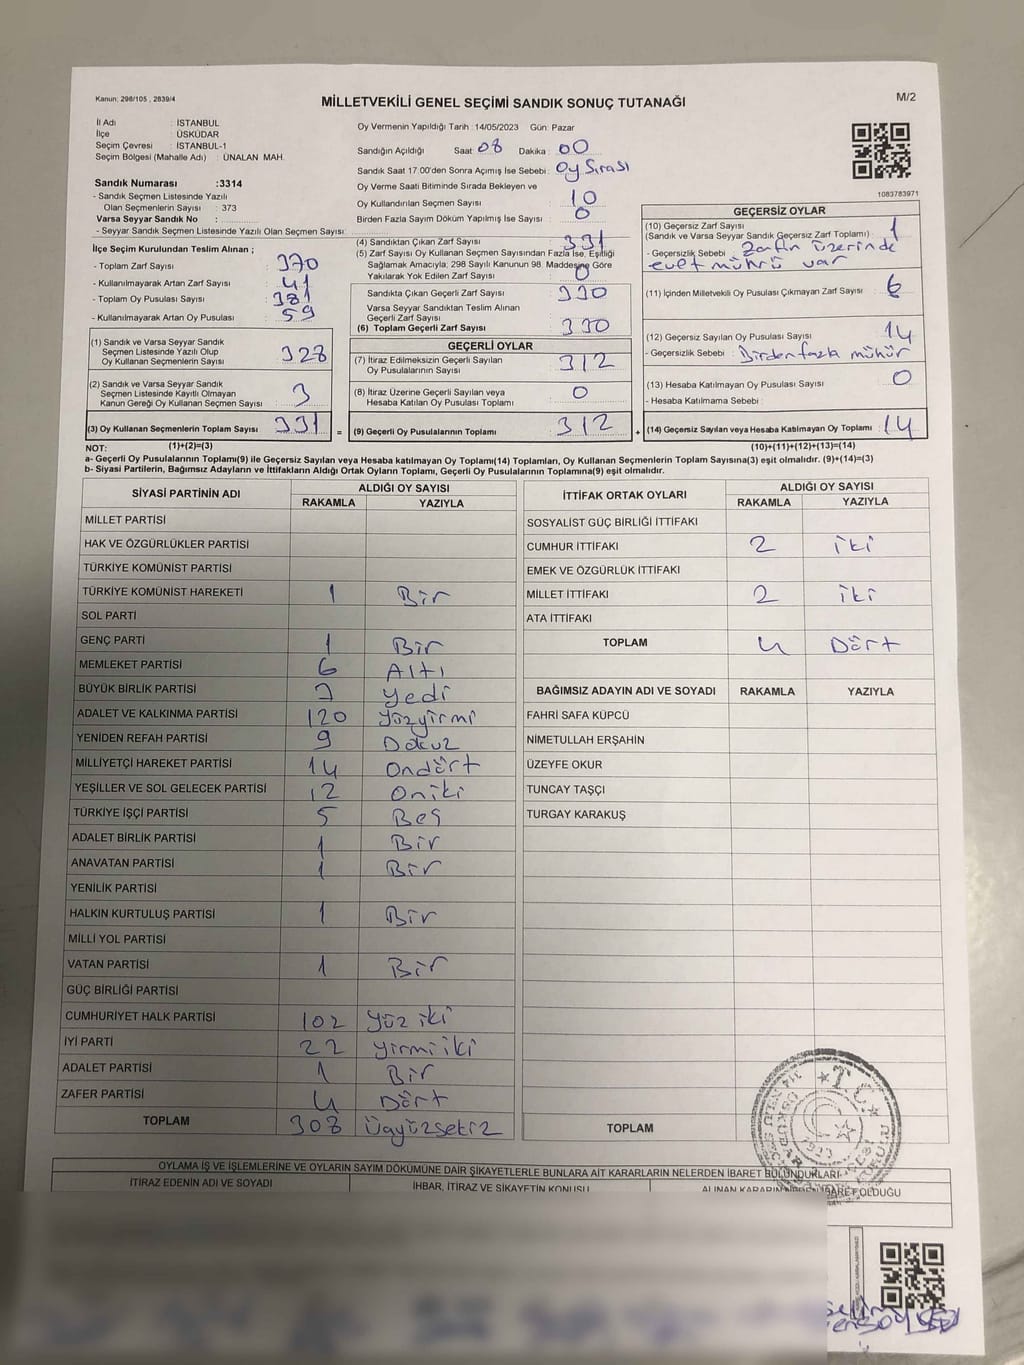 Kanun: 298/105 , 2839/4
MİLLETVEKİLİ GENEL SEÇİMİ SANDIK SONUÇ TUTANAĞI
M/2
İl Adı : İSTANBUL
İlçe : ÜSKÜDAR
Seçim Çevresi : İSTANBUL-1
Seçim Bölgesi (Mahalle Adı) : ÜNALAN MAH.
Sandık Numarası :3314
- Sandık Seçmen Listesinde Yazılı
Olan Seçmenlerin Sayısı : 373
Varsa Seyyar Sandık No :
- Seyyar Sandık Seçmen Listesinde Yazılı Olan Seçmen Sayısı:
Oy Vermenin Yapıldığı Tarih :14/05/2023 Gün: Pazar
Sandığın Açıldığı Saat: 08 Dakika : 00
Sandık Saat 17.00'den Sonra Açımış İse Sebebi: Oy Sırası
Oy Verme Saati Bitiminde Sırada Bekleyen ve
Oy Kullandırılan Seçmen Sayısı : 10
Birden Fazla Sayım Döküm Yapılmış İse Sayısı : 0
1083783971
İlçe Seçim Kurulundan Teslim Alınan ;
- Toplam Zarf Sayısı : 370
- Kullanılmayarak Artan Zarf Sayısı : 41
- Toplam Oy Pusulası Sayısı : 381
- Kullanılmayarak Artan Oy Pusulası : 59
(1) Sandık ve Varsa Seyyar Sandık
Seçmen Listesinde Yazılı Olup
Oy Kullanan Seçmenlerin Sayısı : 328
(2) Sandık ve Varsa Seyyar Sandık
Seçmen Listesinde Kayıtlı Olmayan
Kanun Gereği Oy Kullanan Seçmen Sayısı : 3
(3) Oy Kullanan Seçmenlerin Toplam Sayısı : 331
(1)+(2)=(3)
(4) Sandıktan Çıkan Zarf Sayısı : 331
(5) Zarf Sayısı Oy Kullanan Seçmen Sayısından Fazla İse, Eşitliği
Sağlamak Amacıyla; 298 Sayılı Kanunun 98. Maddesine Göre
Yakılarak Yok Edilen Zarf Sayısı : 0
Sandıkta Çıkan Geçerli Zarf Sayısı : 330
Varsa Seyyar Sandıktan Teslim Alınan
Geçerli Zarf Sayısı :
(6) Toplam Geçerli Zarf Sayısı : 330
GEÇERLİ OYLAR
(7) İtiraz Edilmeksizin Geçerli Sayılan
Oy Pusulalarının Sayısı : 312
(8) İtiraz Üzerine Geçerli Sayılan veya
Hesaba Katılan Oy Pusulası Toplamı : 0
= (9) Geçerli Oy Pusulalarının Toplamı : 312
GEÇERSİZ OYLAR
(10) Geçersiz Zarf Sayısı
(Sandık ve Varsa Seyyar Sandık Geçersiz Zarf Toplamı) : 1
- Geçersizlik Sebebi : Zarfın üzerinde
evet mührü var
(11) İçinden Milletvekili Oy Pusulası Çıkmayan Zarf Sayısı : 6
(12) Geçersiz Sayılan Oy Pusulası Sayısı : 14
- Geçersizlik Sebebi : Birden fazla mühür
(13) Hesaba Katılmayan Oy Pusulası Sayısı : 0
- Hesaba Katılmama Sebebi :
+ (14) Geçersiz Sayılan veya Hesaba Katılmayan Oy Toplamı : 14
(10)+(11)+(12)+(13)=(14)
NOT:
a- Geçerli Oy Pusulalarının Toplamı(9) ile Geçersiz Sayılan veya Hesaba katılmayan Oy Toplamı(14) Toplamları, Oy Kullanan Seçmenlerin Toplam Sayısına(3) eşit olmalıdır. (9)+(14)=(3)
b- Siyasi Partilerin, Bağımsız Adayların ve İttifakların Aldığı Ortak Oyların Toplamı, Geçerli Oy Pusulalarının Toplamına(9) eşit olmalıdır.
SİYASİ PARTİNİN ADI ALDIĞI OY SAYISI
RAKAMLA YAZIYLA
MİLLET PARTİSİ
HAK VE ÖZGÜRLÜKLER PARTİSİ
TÜRKİYE KOMÜNİST PARTİSİ
TÜRKİYE KOMÜNİST HAREKETİ 1 Bir
SOL PARTİ
GENÇ PARTİ 1 Bir
MEMLEKET PARTİSİ 6 Altı
BÜYÜK BİRLİK PARTİSİ 7 Yedi
ADALET VE KALKINMA PARTİSİ 120 Yüzyirmi
YENİDEN REFAH PARTİSİ 9 Dokuz
MİLLİYETÇİ HAREKET PARTİSİ 14 Ondört
YEŞİLLER VE SOL GELECEK PARTİSİ 12 Oniki
TÜRKİYE İŞÇİ PARTİSİ 5 Beş
ADALET BİRLİK PARTİSİ 1 Bir
ANAVATAN PARTİSİ 1 Bir
YENİLİK PARTİSİ
HALKIN KURTULUŞ PARTİSİ 1 Bir
MİLLİ YOL PARTİSİ
VATAN PARTİSİ 1 Bir
GÜÇ BİRLİĞİ PARTİSİ
CUMHURİYET HALK PARTİSİ 102 Yüz iki
İYİ PARTİ 22 Yirmi iki
ADALET PARTİSİ 1 Bir
ZAFER PARTİSİ 4 Dört
TOPLAM 308 Üçyüzsekiz
İTTİFAK ORTAK OYLARI ALDIĞI OY SAYISI
RAKAMLA YAZIYLA
SOSYALİST GÜÇ BİRLİĞİ İTTİFAKI
CUMHUR İTTİFAKI 2 iki
EMEK VE ÖZGÜRLÜK İTTİFAKI
MİLLET İTTİFAKI 2 iki
ATA İTTİFAKI
TOPLAM 4 Dört
BAĞIMSIZ ADAYIN ADI VE SOYADI RAKAMLA YAZIYLA
FAHRİ SAFA KÜPCÜ
NİMETULLAH ERŞAHİN
ÜZEYFE OKUR
TUNCAY TAŞÇI
TURGAY KARAKUŞ
TOPLAM
T.C.
OYLAMA İŞ VE İŞLEMLERİNE VE OYLARIN SAYIM DÖKÜMÜNE DAİR ŞİKAYETLERLE BUNLARA AİT KARARLARIN NELERDEN İBARET BULUNDUKLARI
İTİRAZ EDENİN ADI VE SOYADI İHBAR, İTİRAZ VE ŞİKAYETİN KONUSU ALINAN KARARIN NEDEN İBARET OLDUĞU